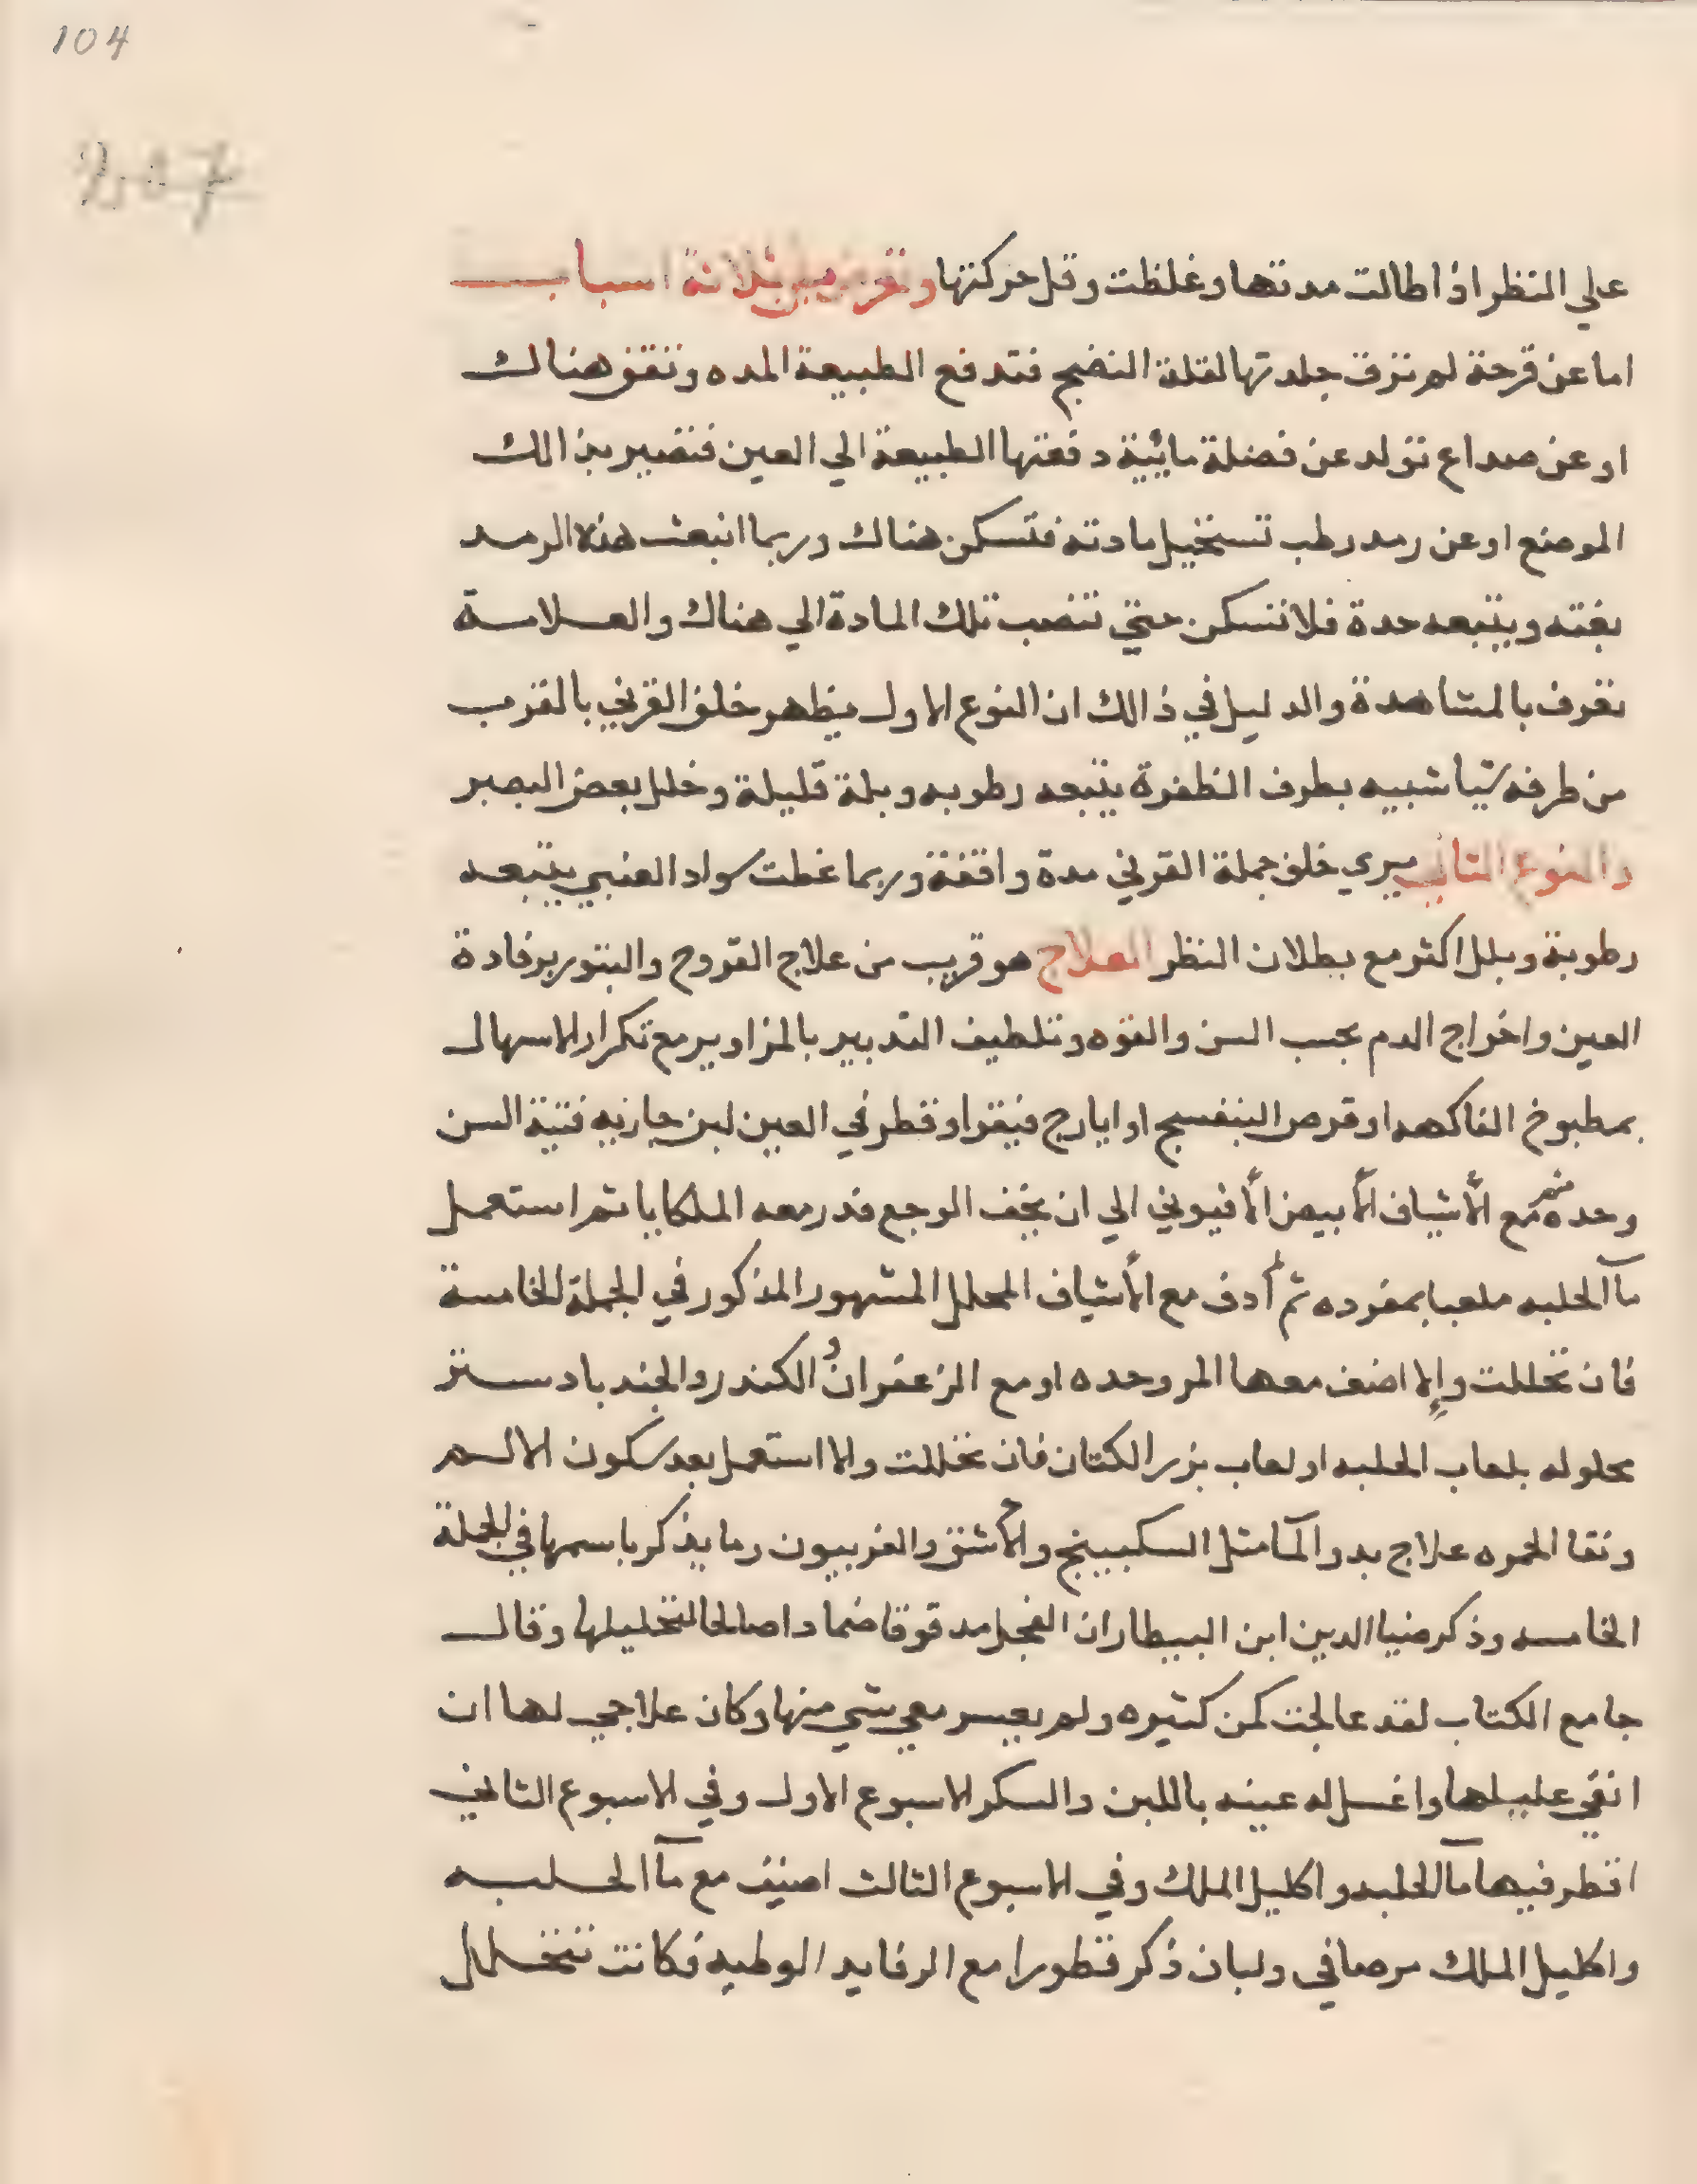 104
علي النظر اذا طالت مدتها وغلظت وقل حركتها وتعرض من ثلاثة اسباب
اما عن قرحة لم تزق جلدتها لقلة النضج فتدفع الطبيعة المده وتقف هناك
او عن صداع تولد عن فضلة مائية دفعتها الطبيعة الي العين فتصير بذالك
الموضع او عن رمد رطب تستحيل مادته فتسكن هناك وربما انبعث هذه الرمد
بغته ويتبعه حدة فلا تسكن حتي تنصب تلك المادة الي هناك والعلامة
تعرف بالمشاهدة والدليل في ذالك ان النوع الاول يظهر خلف القرني بالقرب
من طرفه شيا شبيه بطرف الظفرة يتبعه رطوبه وبلة قليلة وخلل بعض البصر
والنوع الثاني يري خلف جملة القرني مدة واقفة وربما غطت سواد العنبي يتبعه
رطوبة وبلل اكثر مع بطلان النظر العلاج هو قريب من علاج القروح والبثور برفادة
العين واخراج الدم بحسب السن والقوه وتلطيف التدبير بالمزاوير مع تكرار الاسهال
بمطبوخ الفاكهه او قرص البنفسج او ايارج فيقرا وقطر في العين لبن جاريه فتية السن
وحده ثم مع الأشياف الأبيض الأفيوني الي ان يخف الوجع فدر معه الملكايا ثم استعمل
مآ الحلبه ملعبا بمفرده ثم أدف مع الأشياف المحلل المشهور المذكور في الجملة الخامسة
فان تحللت وإلا اضف معها المر وحده او مع الزعفران والكندر والجندبادستر
محلوله بلعاب الحلبه او لعاب بزر الكتان فان تحللت والا استعمل بعد سكون الالم
ونقا الحمره علاج بدو المآ مثل السكبينج والأشق والفربيون وما يذكر باسمها في الجملة
الخامسه وذكر ضيا الدين ابن البيطار ان الفجل مدقوقا ضمادا صالحا لتحليلها وقال
جامع الكتاب لقد عالجت كمن كثيره ولم يعسر معي شي منها وكان علاجي لها ان
انقي عليلها واغسل له عينه باللبن والسكر الاسبوع الاول وفي الاسبوع الثاني
اقطر فيها مآ الحلبه واكليل الملك وفي الاسبوع الثالث اضيف مع مآ الحلبه
واكليل الملك مر صافي ولبان ذكر قطورا مع الرفايد الوطيه فكانت تتحلل